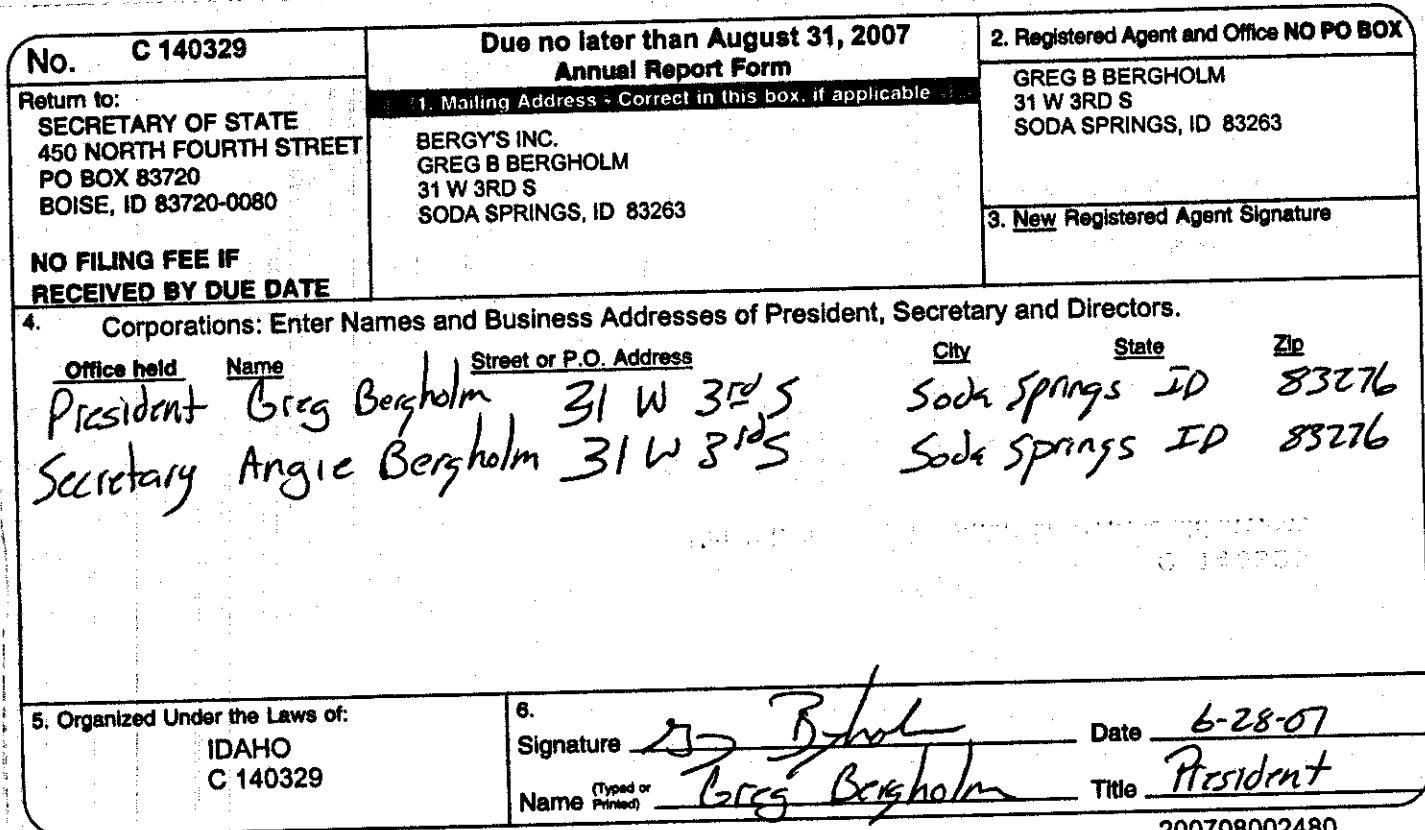 No. C 140329
Return to:
SECRETARY OF STATE
450 NORTH FOURTH STREET
PO BOX 83720
BOISE, ID 83720-0080
NO FILING FEE IF
RECEIVED BY DUE DATE
Due no later than August 31, 2007
Annual Report Form
1. Mailing Address - Correct in this box, if applicable
BERGY'S INC.
GREG B BERGHOLM
31 W 3RD S
SODA SPRINGS, ID 83263
2. Registered Agent and Office NO PO BOX
GREG B BERGHOLM
31 W 3RD S
SODA SPRINGS, ID 83263
3. New Registered Agent Signature
4. Corporations: Enter Names and Business Addresses of President, Secretary and Directors.
Office held Name Street or P.O. Address City State Zip
President Greg Bergholm 31 W 3rd S Soda Springs ID 83276
Secretary Angie Bergholm 31 W 3rd S Soda Springs ID 83276
5. Organized Under the Laws of:
IDAHO
C 140329
6.
Signature Date 6-28-07
Name (Typed or Printed) Greg Bergholm Title President
200708002480